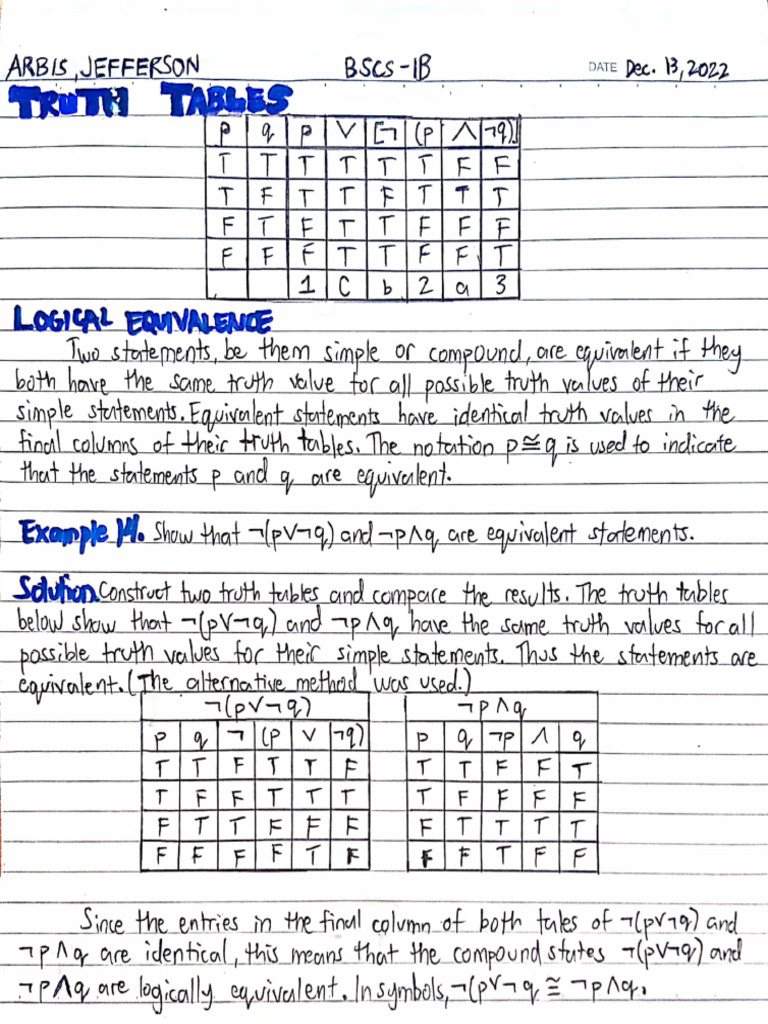 ARBIS, JEFFERSON BSCS-1B DATE Dec. 13, 2022
TRUTH TABLES
p q p ∨ [¬ (p ∧ ¬q)]
T T T T T T F F
T F T T F T T T
F T F T T F F F
F F F T T F F T
1 C b 2 a 3
LOGICAL EQUIVALENCE
Two statements, be them simple or compound, are equivalent if they
both have the same truth value for all possible truth values of their
simple statements. Equivalent statements have identical truth values in the
final columns of their truth tables. The notation p≅q is used to indicate
that the statements p and q are equivalent.
Example 14. Show that ¬(p∨¬q) and ¬p∧q are equivalent statements.
Solution. Construct two truth tables and compare the results. The truth tables
below show that ¬(p∨¬q) and ¬p∧q have the same truth values for all
possible truth values for their simple statements. Thus the statements are
equivalent. (The alternative method was used.)
¬(p∨¬q) ¬p∧q
p q ¬ (p ∨ ¬q) p q ¬p ∧ q
T T F T T F T T F F T
T F F T T T T F F F F
F T T F F F F T T T T
F F F F T F F F T F F
Since the entries in the final column of both tales of ¬(p∨¬q) and
¬p∧q are identical, this means that the compound states ¬(p∨¬q) and
¬p∧q are logically equivalent. In symbols, ¬(p∨¬q ≅ ¬p∧q.